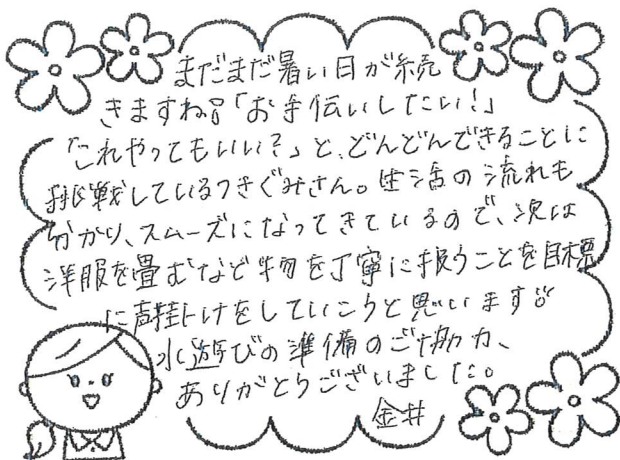 まだまだ暑い日が続
きますね。「お手伝いしたい！」
「これやってもいい？」と、どんどんできることに
挑戦しているつきぐみさん。生活の流れも
分かり、スムーズになってきているので、次は
洋服を畳むなど物を丁寧に扱うことを目標
に声掛けをしていこうと思います。
水遊びの準備のご協力、
ありがとうございました。
金井